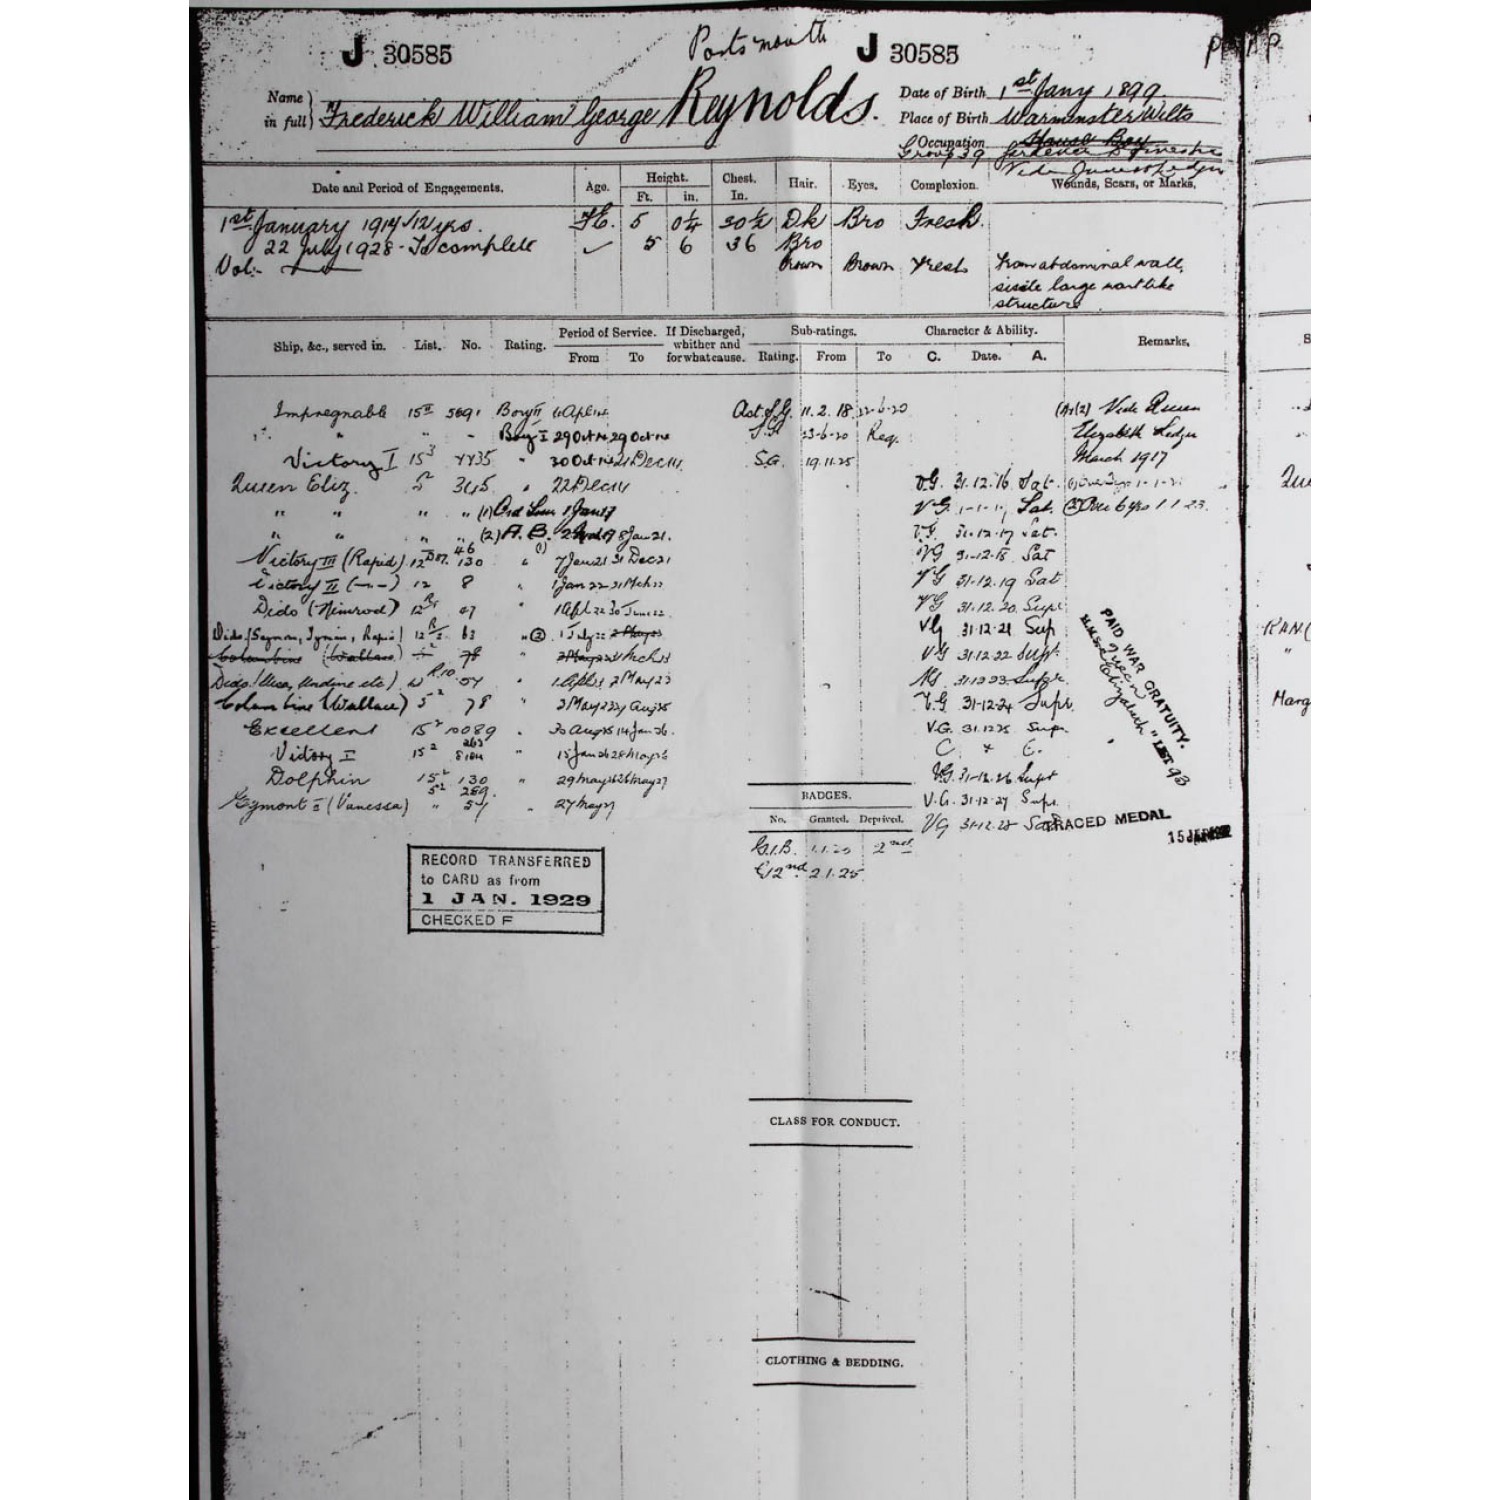 Portsmouth
J 30585 J 30585
Name in full Frederick William George Reynolds.
Date of Birth 1st Jany 1899.
Place of Birth Warminster Wilts
Occupation House Boy
Group 39
Date and Period of Engagements. Age. Height. Ft. in. Chest. In. Hair. Eyes. Complexion. Wounds, Scars, or Marks.
1st January 1917 - 12 yrs. 5 0¼ 30½ Dk Bro Fresh.
22 July 1928 - To complete ✓ 5 6 36 Bro
Vol:- Brown Brown Fresh
abdominal wall,
large wart like
structure
Ship, &c., served in. List. No. Rating. Period of Service. From To If Discharged, whither and for what cause. Sub-ratings. Rating. From To Character & Ability. C. Date. A. Remarks.
Impregnable 15 II 5691 Boy II Act. S.G. 11.2.18 22-6-20 Vide Queen
" " " Boy I 29 Oct 14 29 Oct 14 S.G. 23-6-20 Req. Elizabeth Ledger
Victory I 15³ 4435 " 30 Oct 14 21 Dec 14 S.G. 19.11.25 March 1917
Queen Eliz. 5 345 " 22 Dec 14 V.G. 31.12.16 Sat.
" " " " (1) Ord Sea 1 Jan 17 V.G. Sat. (2) Over 6 yrs 1.1.23.
" " " " (2) A.B. 8 Jan 21. V.G. 31.12.17 Sat.
Victory III (Rapid) 12 130 " 31 Dec 21 VG 31-12-18 Sat
Victory II 12 8 " 1 Jan 22 31 Mch 22 VG 31.12.19 Sat
Dido (Nimrod) 12 47 " 1 Apl 22 30 June 22 VG 31.12.20. Supr
Dido 12 63 " (2) 1 July 22 VG 31.12.21 Sup
Columbine (Wallace) 5² 78 " VG 31.12.22 Supr.
Dido 57 " 1 Apl 23 2 May 23 VG 31.12.23 Supr.
Columbine (Wallace) 5² 78 " 3 May 23 29 Aug 25 V.G 31-12-24 Supr.
Excellent 15² 10089 " 30 Aug 25 14 Jan 26. V.G. 31.12.25 Supr.
Victory I 15² " 15 Jan 26 28 May 26
Dolphin 15² 130 " 29 May 26 26 May 27 V.G. 31-12-26 Supr
5² 289
Egmont I (Vanessa) " 54 " 27 May 27 V.G. 31.12.27 Supr.
VG 31.12.28
PAID WAR GRATUITY.
H.M.S. Queen Elizabeth "
LIST 93
TRACED MEDAL
BADGES.
No. Granted. Deprived.
G.1.B. 1.1.20 2nd
G 2nd 2.1.25
RECORD TRANSFERRED
to CARD as from
1 JAN. 1929
CHECKED F
CLASS FOR CONDUCT.
CLOTHING & BEDDING.